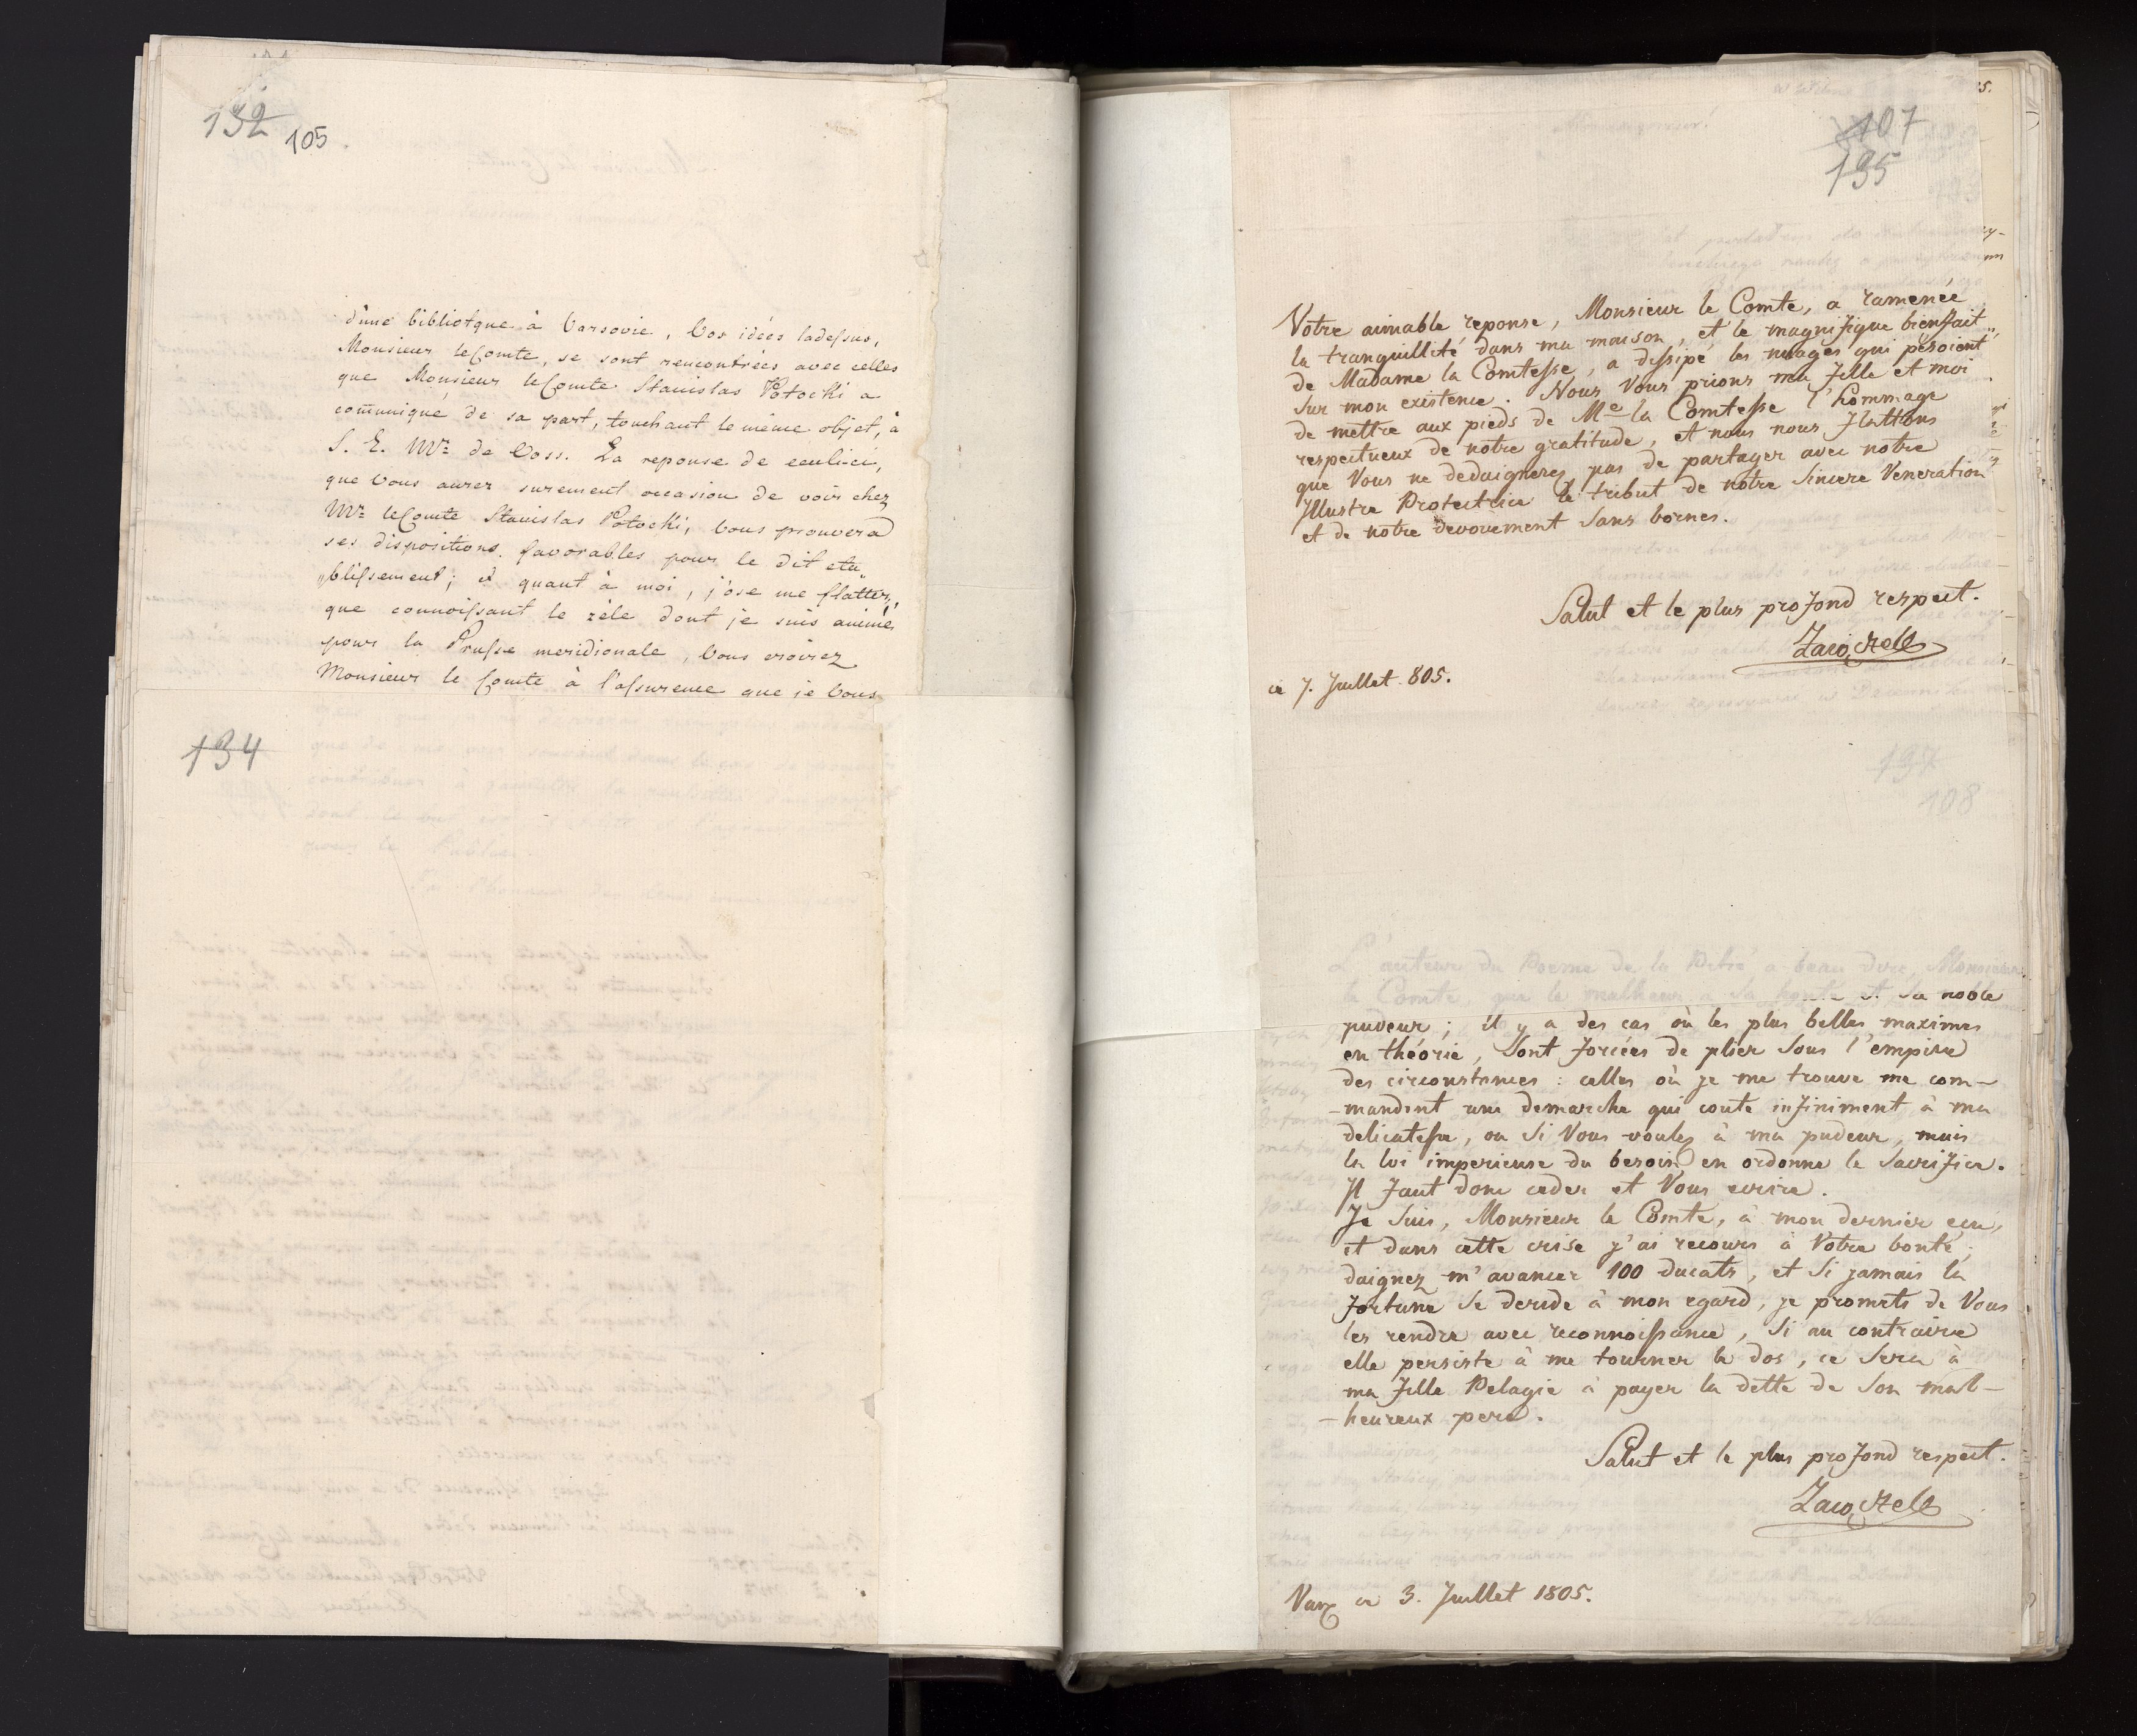 132
105
d'une bibliotque à Varsovie, Vos idées ladessus,
Monsieur le Comte, se sont rencontrées avec celles
que Monsieur le Comte Stanislas Potocki a
com̄uniqué de sa part, touchant le même objet, à
S. E. Mr. de Voss. La reponse de ceului-ci,
que Vous aurez surement occasion de voir chez
Mr. le Comte Stanislas Potocki, Vous prouvera
ses dispositions favorables pour le dit eta„
„blissement; et quant à moi, j'ose me flatter,
que connoissant le zèle dont je suis animé
pour la Prusse meridionale, Vous croirez
Monsieur le Comte à l'assurence que je Vous
134
107
135
Votre aimable reponse, Monsieur le Comte, a ramenée
la tranquillité dans ma maison, et le magnifique bienfait
de Madame la Comtesse, a dissipé les nuages qui pesoient
sur mon existence. Nous Vous prions ma fille et moi
de mettre aux pieds de Me la Comtesse l'hommage
respectueux de notre gratitude, et nous nous flattons
que Vous ne dedaignerez pas de partager avec notre
Illustre Protectrice le tribut de notre sincere Veneration
et de notre devouement sans bornes.
Salut et le plus profond respect.
ce 7. Juillet 805.
137
108
L'auteur du Poeme de la Pitié a beau dire, Monsieur
le Comte, que le malheur a sa honte et sa noble
pudeur; il y a des cas où les plus belles maximes
en théorie, sont forcées de plier sous l'empire
des circonstances: celles où je me trouve me com-
-mandent une demarche qui coute infiniment à ma
delicatesse, ou si Vous voulez à ma pudeur, mais
la loi imperieuse du besoin en ordonne le sacrifice.
Il faut donc ceder et Vous ecrire.
Je suis, Monsieur le Comte, à mon dernier ecu,
et dans cette crise j'ai recours à Votre bonté;
daignez m'avancer 100 ducats, et si jamais la
fortune se deride à mon egard, je promets de Vous
les rendre avec reconnoissance, si au contraire
elle persiste à me tourner le dos, ce sera à
ma fille Pelagie à payer la dette de son mal-
-heureux pere.
Salut et le plus profond respect.
ce 3. Juillet 1805.